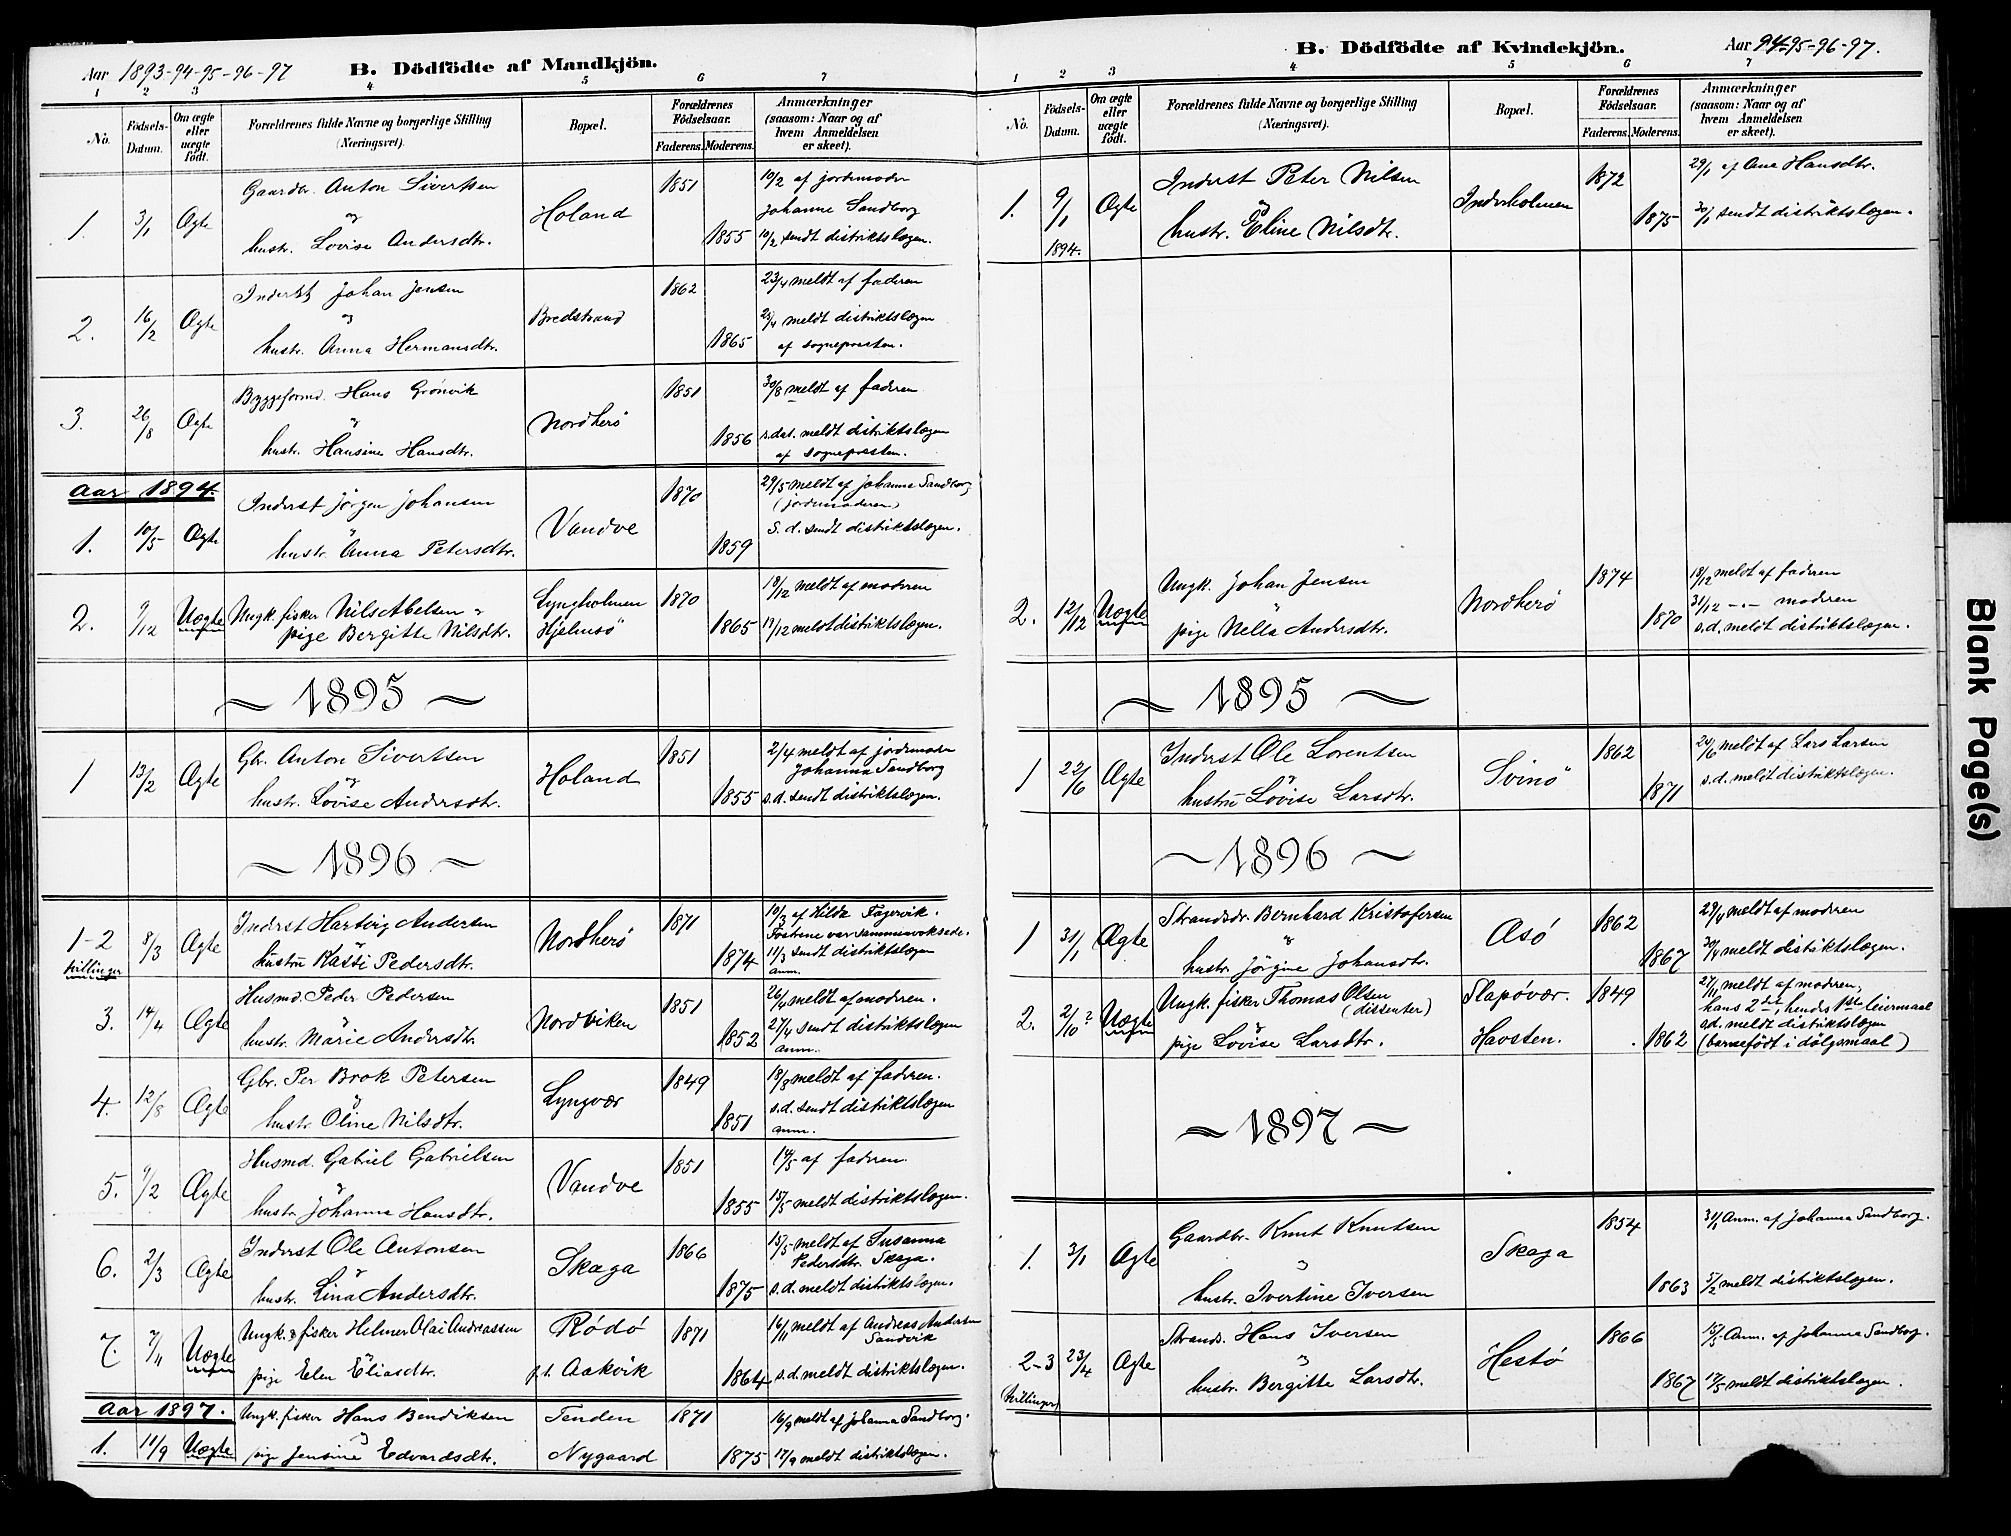 Aar 1893-94-95-96-97
B. Dödfödte af Mandkjön.
1 2 3 4 5 6 7
No. Födsels-Datum. Om ægte eller uægte födt. Forældrenes fulde Navne og borgerlige Stilling (Næringsvei). Bopæl. Forældrenes Födselsaar. Faderens. Moderens. Anmærkninger (saasom: Naar og af hvem Anmeldelsen er skeet).
Gaardbr. Anton Sivertsen 1851 10/2 af jordemoder
1. 3/1 Ægte og Holand Johanne Sandborg
hustr. Lovise Andersdtr. 1855 10/2 sendt distriktslægen.
Inderst Johan Jensen 1862 23/4 meldt af faderen
2. 16/2 Ægte og Bredstrand 23/4 meldt distriktslægen
hustr. Anna Hermansdtr. 1865 af sognepresten.
Byggeformd. Hans Grönvik 1851 30/8 meldt af faderen
3. 26/8 Ægte og Nordherö s.dat. meldt distriktslægen
hustr. Hansine Hansdtr. 1856 af sognepresten.
Aar 1894.
Inderst Jörgen Johansen 1870 29/5 meldt af Johanna Sandborg
(jordemoderen)
1. 10/5 Ægte og Vandve S.d. sendt distriktslægen.
hustr. Anna Petersdtr. 1859
2. 9/12 Uægte Ungk. fisker Nils Abelsen og Lyngholmen 1870 18/12 meldt af moderen
pige Bergitte Nilsdtr. Hjelmsö 1865 19/12 meldt distriktslægen.
~ 1895 ~
Gbr. Anton Sivertsen 1851 2/4 meldt af jordemoder
1 13/2 Ægte og Holand Johanna Sandborg
hustr. Lovise Andersdtr. 1855 s.d. sendt distriktslægen.
~ 1896 ~
Inderst Hartvig Andersen 1871 10/3 af Hilda Fagervik.
1-2 8/3 Ægte Nordherö Fostrene var sammenvoksede.
tvillinger hustru Kasti Pedersdtr. 1874 11/3 sendt distriktslægen
anm.
Husmd. Peder Pedersen 1851 26/4 meldt af moderen.
3. 14/4 Ægte og Nordviken 27/4 sendt distriktslægen
hustr. Marie Andersdtr. 1852 anm.
Gbr. Per Brok Petersen 1849 18/8 meldt af faderen.
4. 12/8 Ægte og Lyngvær s.d. sendt distriktslægen
hustr. Oline Nilsdtr. 1851 anm.
Husmd. Gabriel Gabrielsen 1851 14/5 af faderen
5. 9/2 Ægte og Vandve
hustr. Johanna Hansdtr. 1855 15/5 meldt distriktslægen.
Inderst Ole Antonsen 1866 15/5 meldt af Susanna
6. 2/3 Ægte og Skaga Pedersdtr. Skaga.
hustr. Lina Andersdtr. 1875 s.d. meldt distriktslægen.
Ungk. & fisker Helmer Olai Andreassen Rödö 1871 16/11 meldt af Andreas Andersen
7. 7/11 Uægte og Sandvik
pige Elen Eliasdtr. p.t. Aakvik 1864 s.d. meldt distriktslægen.
Aar 1897. Ungk. fisker Hans Bendiksen Tenden 1871 16/9 meldt af Johanna Sandborg.
1. 11/9 Uægte og
pige Jensine Edvardsdtr. Nygaard 1875 17/9 meldt distriktslægen.
B. Dödfödte af Kvindekjön.
Aar 94-95-96-97.
1 2 3 4 5 6 7
No. Födsels-Datum. Om ægte eller uægte födt. Forældrenes fulde Navne og borgerlige Stilling (Næringsvei). Bopæl. Forældrenes Födselsaar. Faderens. Moderens. Anmærkninger (saasom: Naar og af hvem Anmeldelsen er skeet).
Inderst Peter Nilsen 1872 29/1 af Ane Hansdtr.
1. 9/1 Ægte og Inderholmen
hustr. Eline Nilsdtr. 1875 30/1 sendt distriktslægen.
1894.
Ungk. Johan Jensen 1874 18/12 meldt af faderen
2. 12/12 Uægte og Nordherö 31/12 -"- moderen
pige Nella Andersdtr. 1870 s.d. meldt distriktslægen.
~ 1895 ~
Inderst Ole Lorentsen 1862 24/6 meldt af Lars Larsen
1 22/6 Ægte og Svinö s.d. meldt distriktslægen.
hustru Lovise Larsdtr. 1871
~ 1896 ~
Strandsdr. Bernhard Kristofersen 1862 29/4 meldt af moderen
1 31/1 Ægte og Asö
hustr. Jörgine Johansdtr. 1867 30/4 meldt distriktslægen.
Ungk. fisker Thomas Olsen Slapövær. 1849 27/11 meldt af moderen,
(dissenter) hans 2det, hendes 1ste leiermaal
2. 2/10? Uægte og s.d. meldt distriktslægen
pige Lovise Larsdtr. Havsten. 1862 (barnefödt i dölgsmaal)
~ 1897 ~
Gaardbr. Knut Knutsen 1854 31/1 Anm. af Johanna Sandborg.
1. 3/1 Ægte og Skaga
hustr. Ivertine Iversen 1863 5/2 meldt distriktslægen.
Strands. Hans Iversen 1866 15/5 Anm. af Johanna Sandborg.
2-3 23/4 Ægte og Hestö
tvillinger hustr. Bergitte Larsdtr. 1867 17/5 meldt distriktslægen.
Blank Page(s)